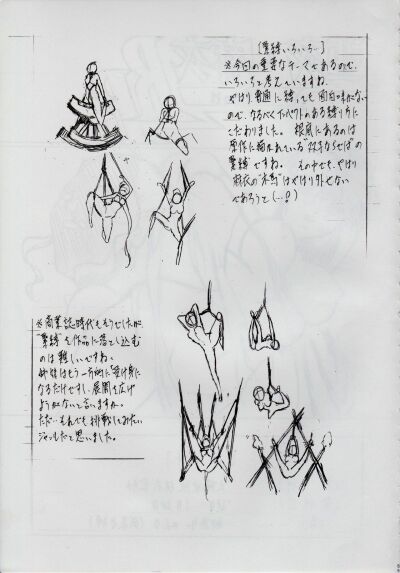 [緊縛いろいろ…]
※今回の重要なテーマであるので、
いろいろと考えていますね。
やはり普通に縛っても面白味がない
ので、なるべくインパクトのある縛り方に
こだわりました。根底にあるのは
原作に描かれている
緊縛ですね。その中でも、やはり
麻衣の“木馬”はやはり外せない
であろうと(…？)
※商業誌時代もそうでしたが、
緊縛を作品に落とし込む
のは難しいですね。
もう一方的に受け身に
なるだけですし、展開を広げ
ようがないと言いますか。
ただ…それでも挑戦してみたい
ジャンルだと思いました。